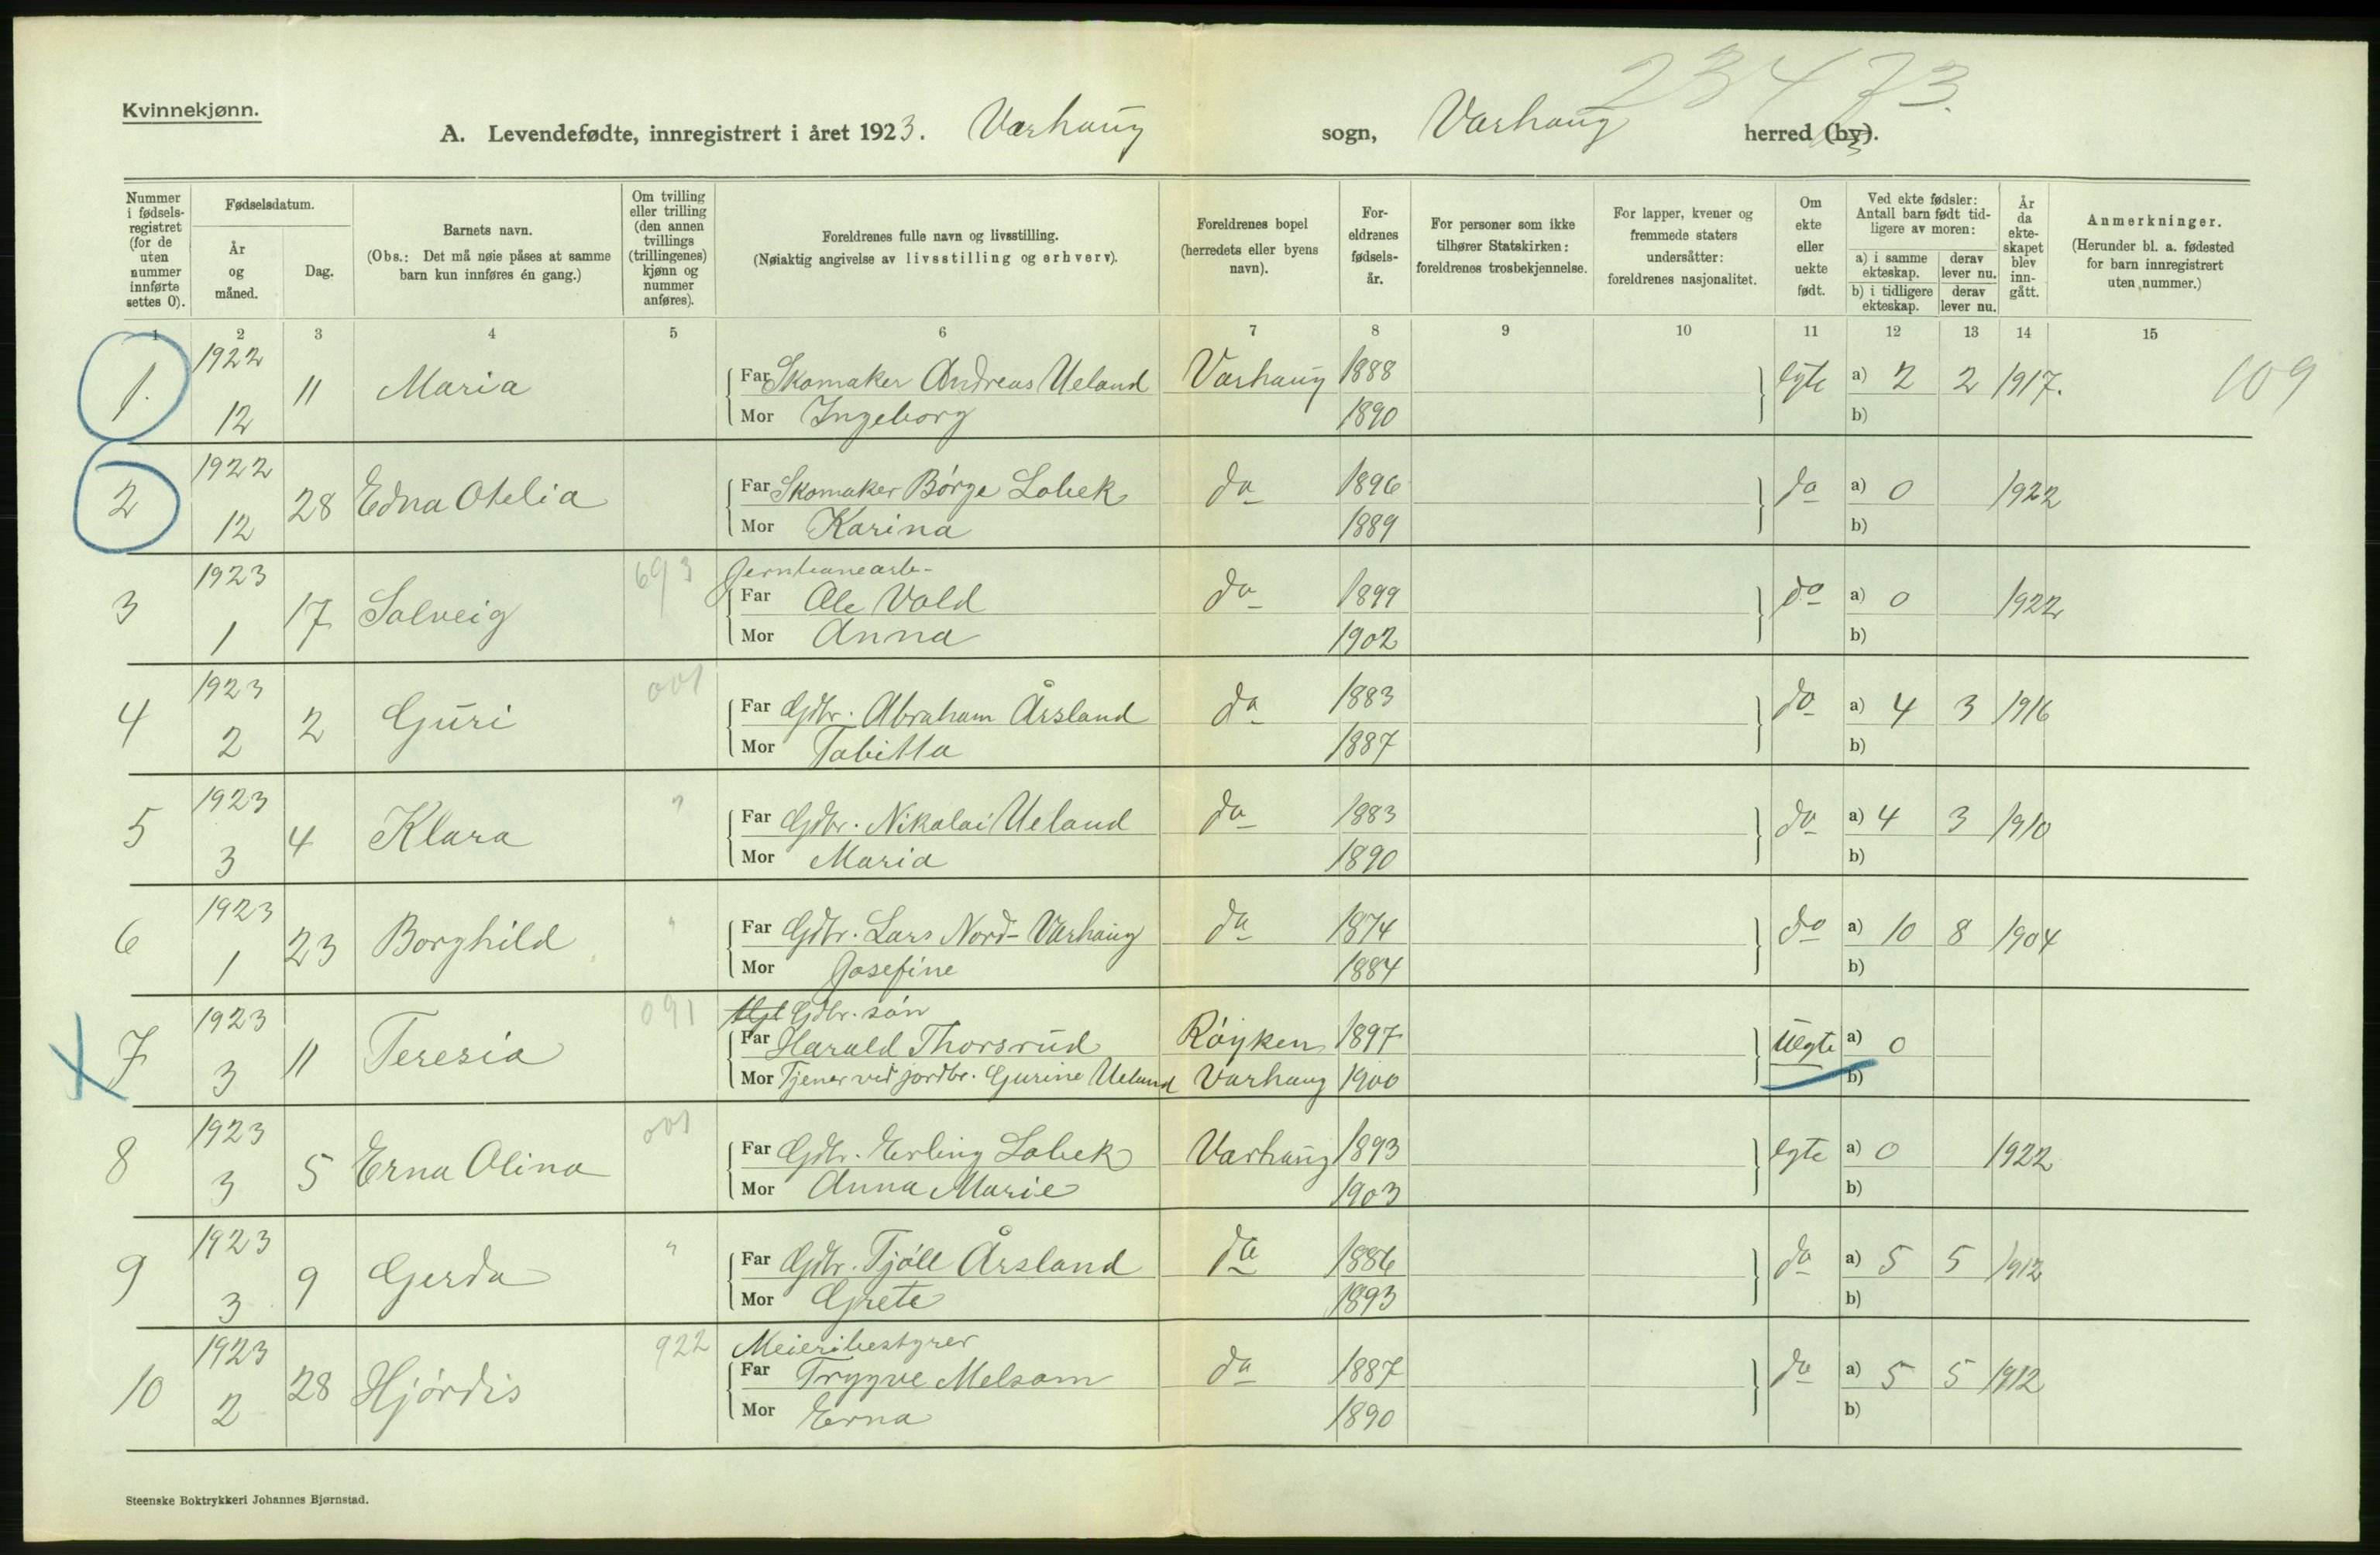 23473.
Kvinnekjønn.
A. Levendefødte, innregistrert i året 1923. Varhaug sogn, Varhaug herred (by).
Nummer i fødsels-registret (for de uten nummer innførte settes 0).
Fødselsdatum.
År og måned.
Dag.
Barnets navn.
(Obs.: Det må nøie påses at samme barn kun innføres én gang.)
Om tvilling eller trilling (den annen tvillings (trillingenes) kjønn og nummer anføres).
Foreldrenes fulle navn og livsstilling.
(Nøiaktig angivelse av livsstilling og erhverv).
Foreldrenes bopel (herredets eller byens navn).
For-eldrenes fødsels-år.
For personer som ikke tilhører Statskirken: foreldrenes trosbekjennelse.
For lapper, kvener og fremmede staters undersåtter: foreldrenes nasjonalitet.
Om ekte eller uekte født.
Ved ekte fødsler: Antall barn født tid-ligere av moren:
a) i samme ekteskap. derav lever nu.
b) i tidligere ekteskap. derav lever nu.
År da ekte-skapet blev inn-gått.
Anmerkninger.
(Herunder bl. a. fødested for barn innregistrert uten nummer.)
1 2 3 4 5 6 7 8 9 10 11 12 13 14 15
1. 1922 12 11 Maria Far Skomaker Andreas Ueland Varhaug 1888 egte a) 2 2 1917. 109
Mor Ingeborg 1890 b)
2 1922 12 28 Edna Otelia Far Skomaker Börge Lobek do 1896 do a) 0 1922
Mor Karina 1889 b)
3 1923 1 17 Solveig 693 Jernbanearb.
Far Ole Vold do 1899 do a) 0 1922
Mor Anna 1902 b)
4 1923 2 2 Guri 001 Far Gdbr. Abraham Årsland do 1883 do a) 4 3 1916
Mor Tabitta 1887 b)
5 1923 3 4 Klara " Far Gdbr. Nikolai Ueland do 1883 do a) 4 3 1910
Mor Maria 1890 b)
6 1923 1 23 Borghild " Far Gdbr. Lars Nord-Varhaug do 1874 do a) 10 8 1904
Mor Josefine 1884 b)
7 1923 3 11 Teresia 091 Gdbr. sön
Far Harald Thorsrud Röyken 1897 Uegte a) 0
Mor Tjener ved jordbr. Gurine Ueland Varhaug 1900 b)
8 1923 3 5 Erna Olina 001 Far Gdbr. Erling Lobek Varhaug 1893 egte a) 0 1922
Mor Anna Marie 1903 b)
9 1923 3 9 Gerda " Far Gdbr. Tjöll Årsland do 1886 do a) 5 5 1912
Mor Grete 1893 b)
10 1923 2 28 Hjördis 922 Meieribestyrer
Far Trygve Melsom do 1887 do a) 5 5 1912
Mor Erna 1890 b)
Steenske Boktrykkeri Johannes Bjørnstad.